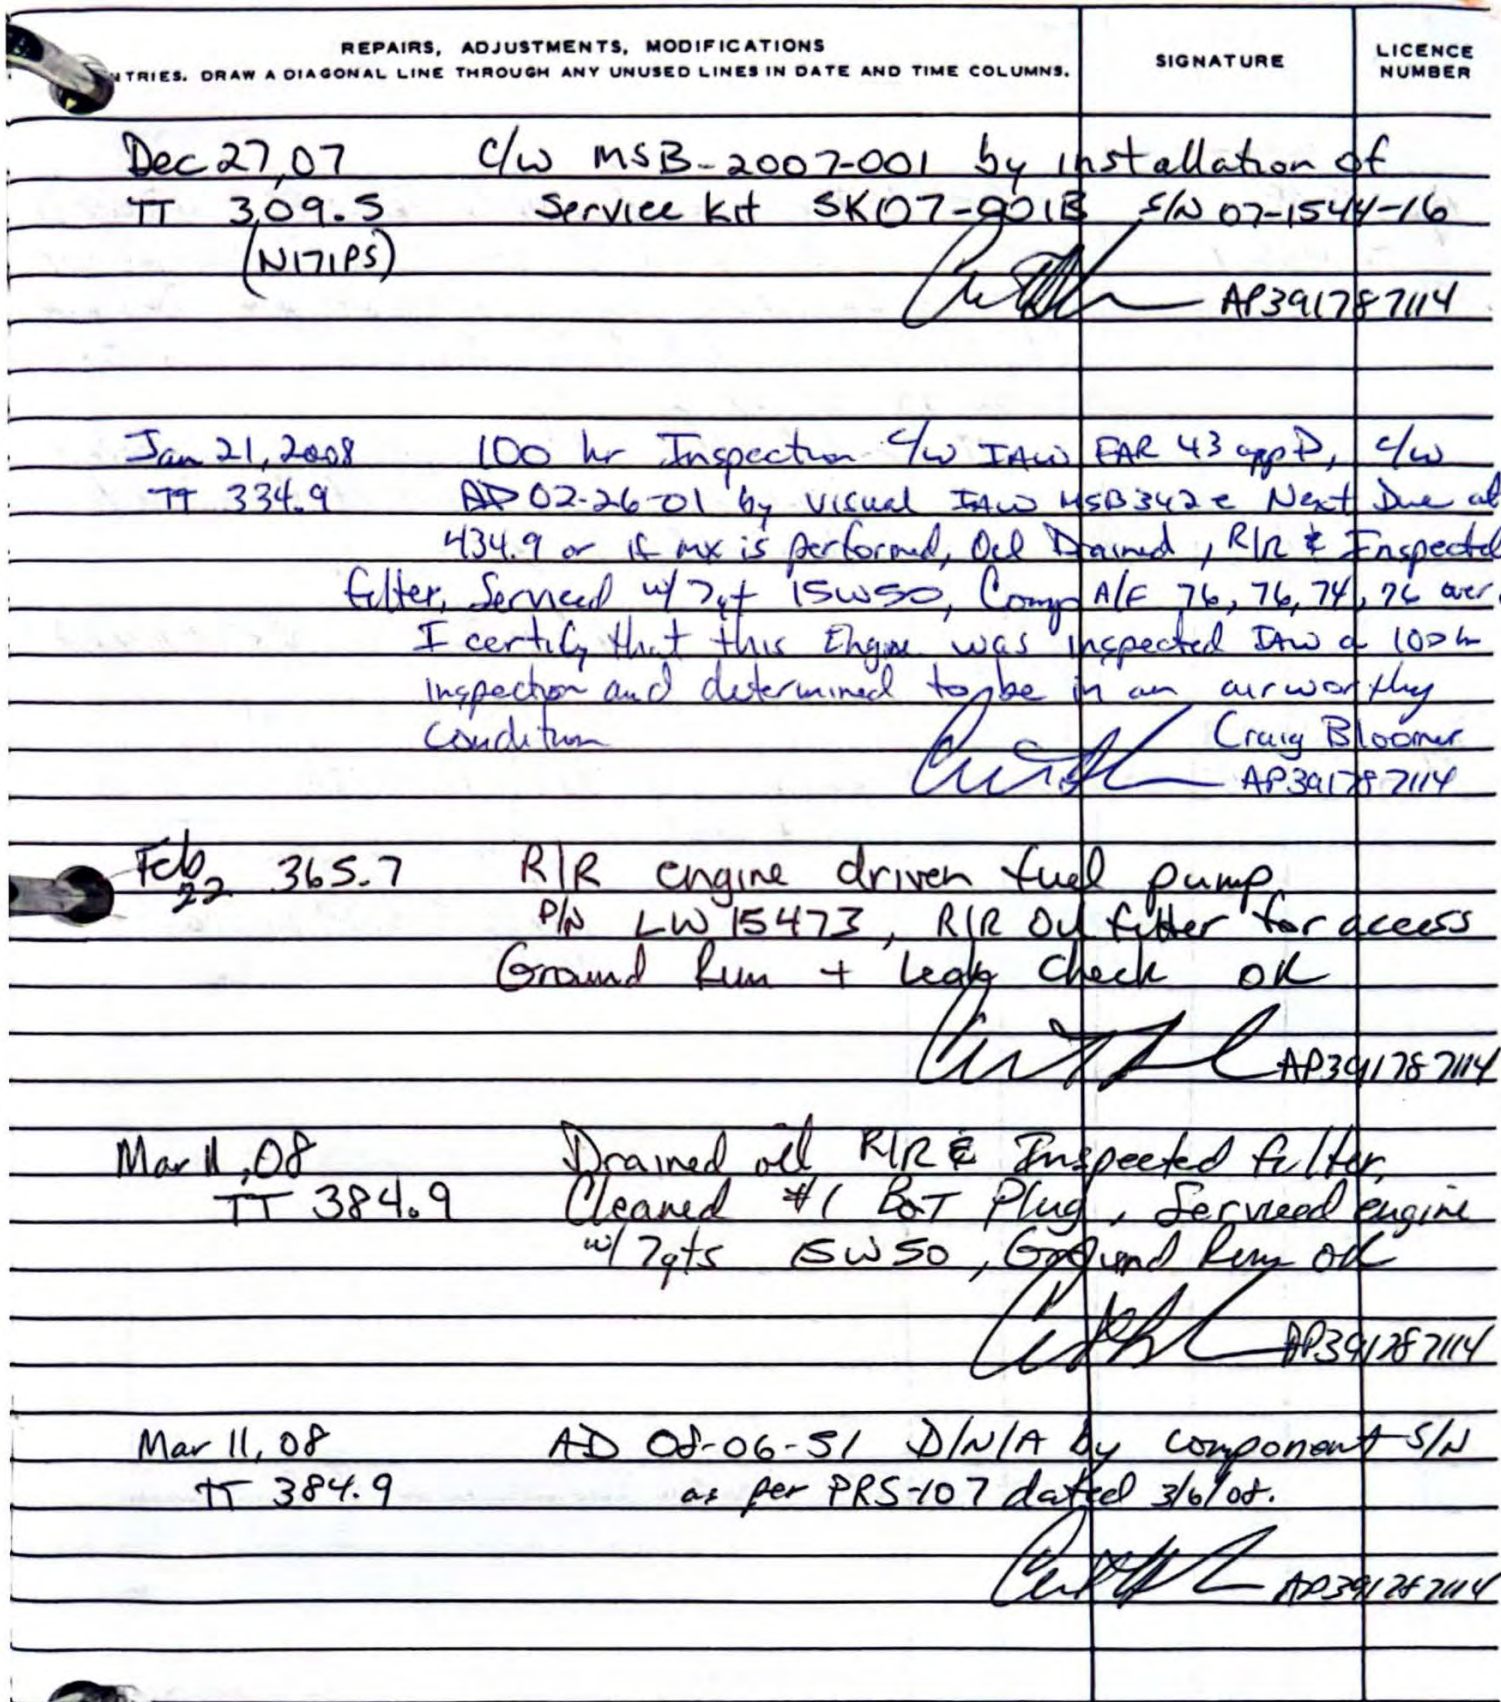 REPAIRS, ADJUSTMENTS, MODIFICATIONS
NTRIES. DRAW A DIAGONAL LINE THROUGH ANY UNUSED LINES IN DATE AND TIME COLUMNS.
SIGNATURE
LICENCE
NUMBER
Dec 27, 07 C/W MSB-2007-001 by installation of
TT 309.5 Service kit SK07-001B S/N 07-1544-16
(N171PS)
AP391787114
Jan 21, 2008 100 hr Inspection C/W IAW FAR 43 app D, C/W
TT 334.9 AD 02-26-01 by visual IAW MSB342E Next Due at
434.9 or if mx is performed, Oil Drained, R/R & Inspected
filter, Serviced w/ 7qt 15W50, Comp A/F 76, 76, 74, 76 over
I certify that this Engine was inspected IAW a 100 hr
inspection and determined to be in an airworthy
condition Craig Bloomer
AP391787114
Feb 22 365.7 R/R engine driven fuel pump
P/N LW15473, R/R Oil filter for access
Ground Run + Leak Check OK
AP391787114
Mar 11, 08 Drained oil R/R & Inspected filter,
TT 384.9 Cleaned #1 BOT Plug, Serviced engine
w/ 7qts 15W50, Ground Run OK
AP391787114
Mar 11, 08 AD 08-06-51 D/N/A by component S/N
TT 384.9 as per PRS-107 dated 3/6/08.
AP391787114